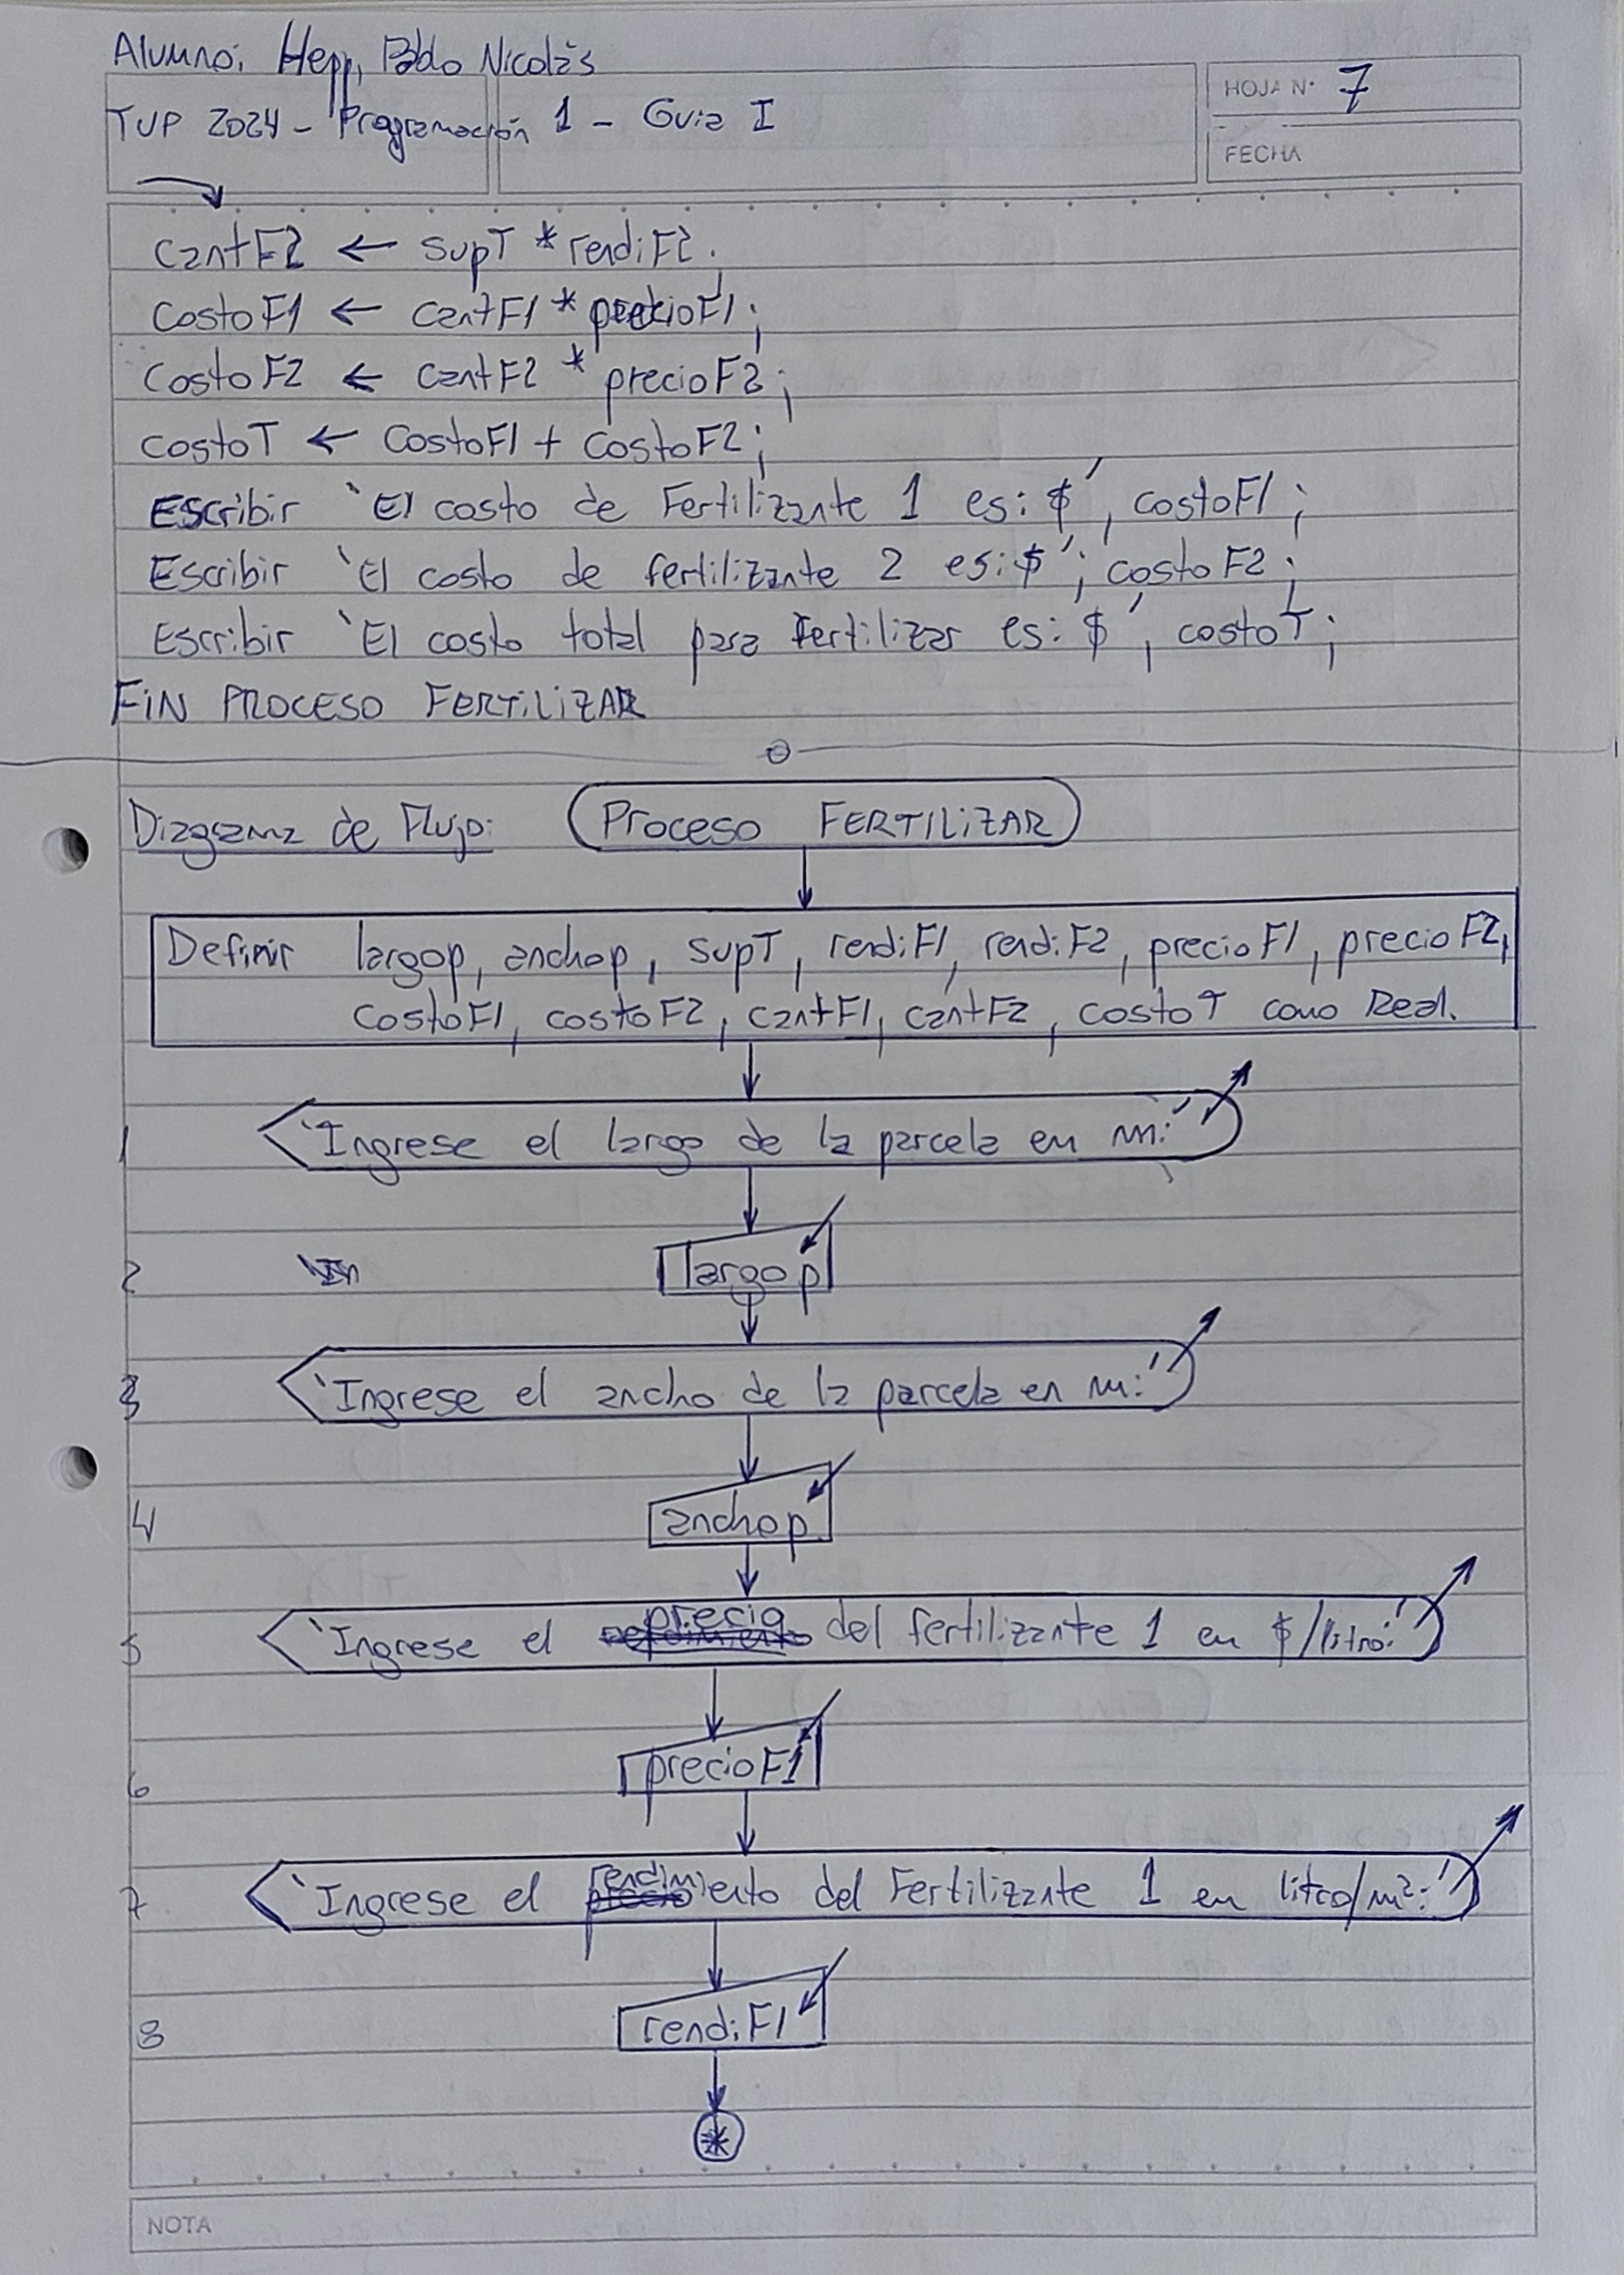 Alumno: Hepp, Pablo Nicolás
TUP 2024 - Programación 1 - Guia I
HOJA N° 7
FECHA
cantF2 ← supT * rendiF2.
costoF1 ← cantF1 * precioF1;
costoF2 ← cantF2 * precioF2;
costoT ← costoF1 + costoF2;
Escribir 'El costo de Fertilizante 1 es: $', costoF1;
Escribir 'El costo de fertilizante 2 es: $'; costoF2;
Escribir 'El costo total para Fertilizar es: $', costoT;
FIN PROCESO FERTILIZAR
Diagrama de Flujo:
Proceso FERTILIZAR
Definir largop, anchop, supT, rendiF1, rendiF2, precioF1, precioF2,
costoF1, costoF2, cantF1, cantF2, costoT como Real.
1 'Ingrese el largo de la parcela en m:'
2 largop
3 'Ingrese el ancho de la parcela en m:'
4 anchop
5 'Ingrese el precio del fertilizante 1 en $/litro:'
6 precioF1
7 'Ingrese el rendimiento del Fertilizante 1 en litro/m²:'
8 rendiF1
*
NOTA